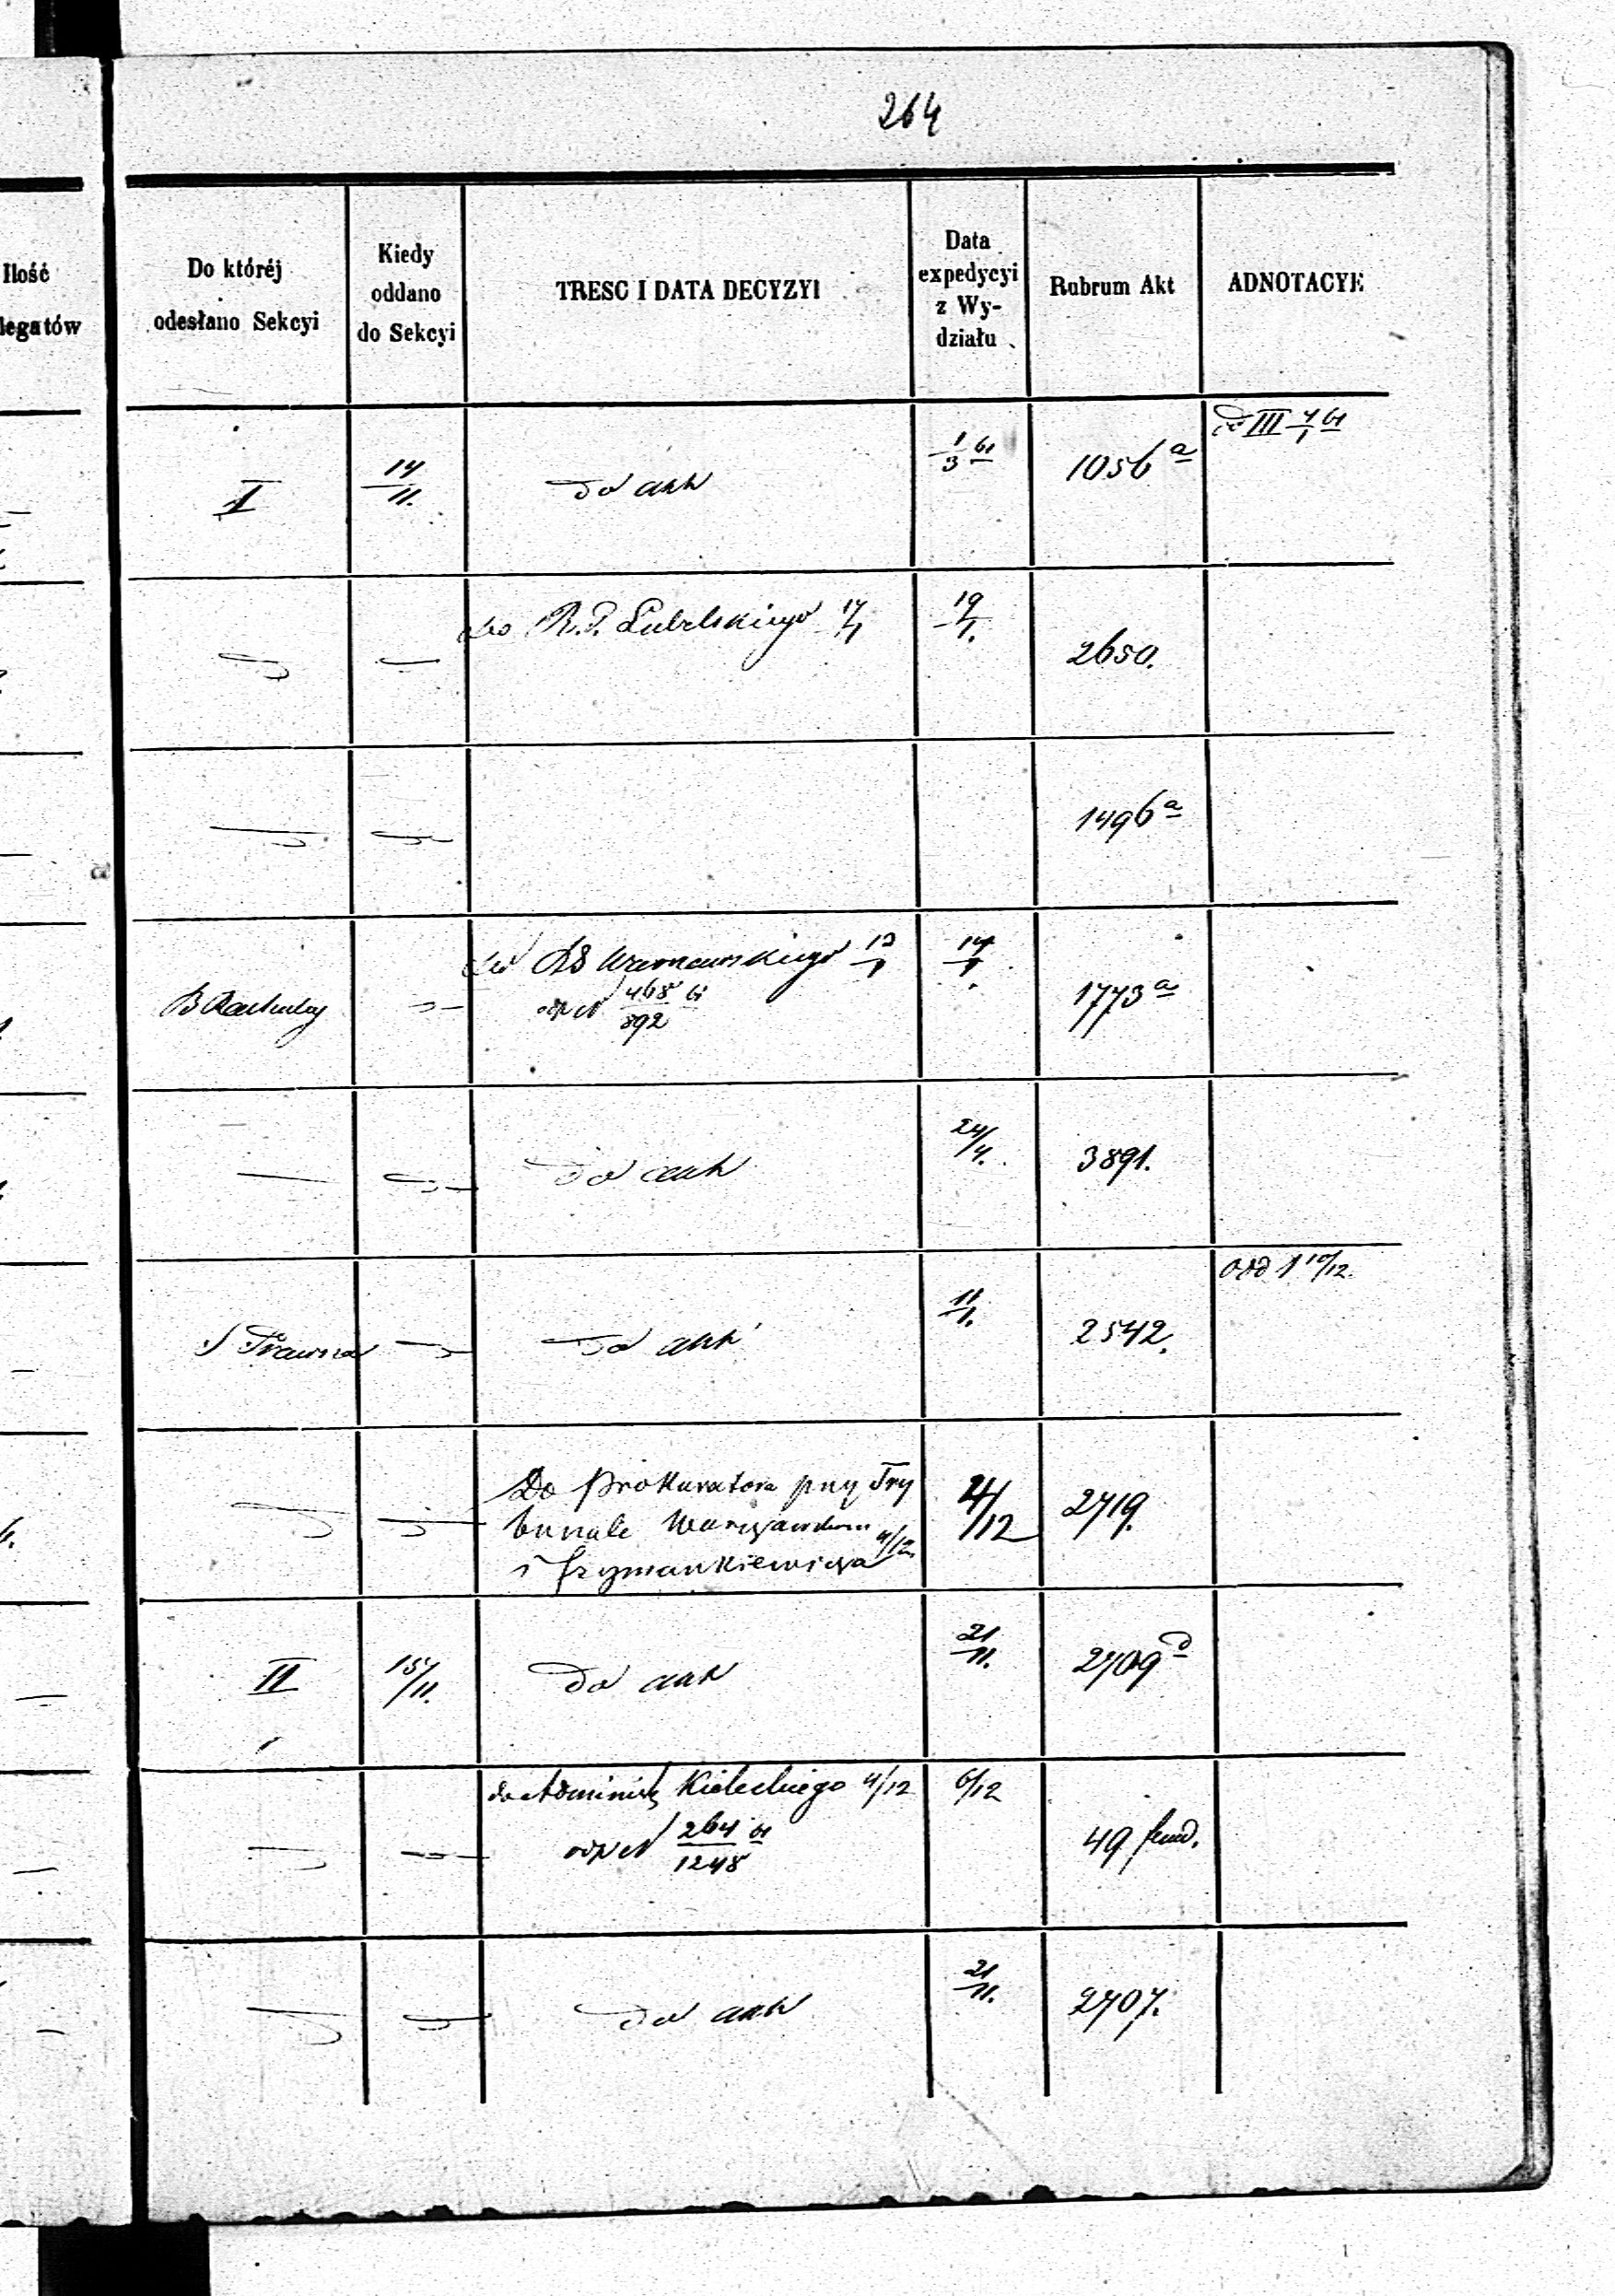 264
Ilość
legatów
Do któréj
odesłano Sekcyi
Kiedy
oddano
do Sekcyi
TRESC I DATA DECYZYI
Data
expedycyi
z Wy-
działu
Rubrum Akt
ADNOTACYE
I
14/11.
do akt
1/3 61
1056 a
do III 4/1 61
do R. P. Lubelskiego 17/1
19/1.
2650.
1496 a
do
12/1
odp N 468/892 61
14/1
1773 a
do akt
24/4.
3891.
S Prawna
do akt
11/1.
2542.
odd 1 10/12.
Do Prokuratora przy Try
bunale Warszawskim
i Szymankiewicza 4/12
4/12
2719.
II
15/11.
Do akt
21/11.
2709 d
do Administ Kieleckiego 4/12
odp N 264/1248 61
6/12
49 fund.
do akt
21/11.
2707.